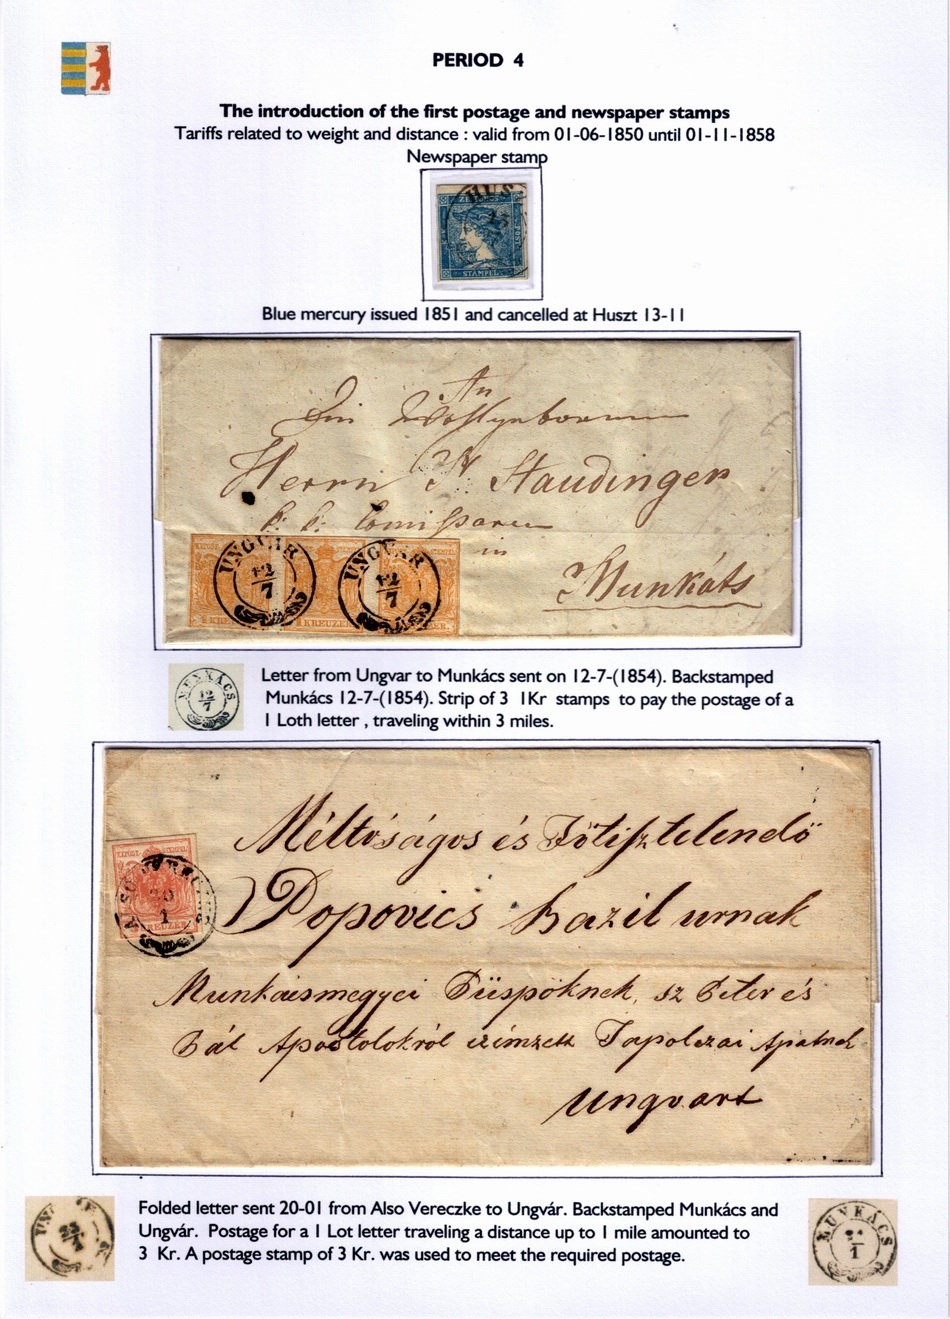 PERIOD 4
The introduction of the first postage and newspaper stamps
Tariffs related to weight and distance : valid from 01-06-1850 until 01-11-1858
Newspaper stamp
HUS
STAMPEL
Blue mercury issued 1851 and cancelled at Huszt 13-11
An
Herrn Staudinger
in
Munkáts
UNGVÁR 12/7
UNGVÁR 12/7
KREUZER
MUNKÁCS 12/7
Letter from Ungvar to Munkács sent on 12-7-(1854). Backstamped
Munkács 12-7-(1854). Strip of 3 1Kr stamps to pay the postage of a
1 Loth letter , traveling within 3 miles.
Méltóságos és Főtisztelendő
Popovics Bazil urnak
Munkácsmegyei Püspöknek, sz Peter és
Pál Apostolokról czimzett Tapolczai Apatnak
Ungvart
KREUZER
Folded letter sent 20-01 from Also Vereczke to Ungvár. Backstamped Munkács and
Ungvár. Postage for a 1 Lot letter traveling a distance up to 1 mile amounted to
3 Kr. A postage stamp of 3 Kr. was used to meet the required postage.
MUNKÁCS